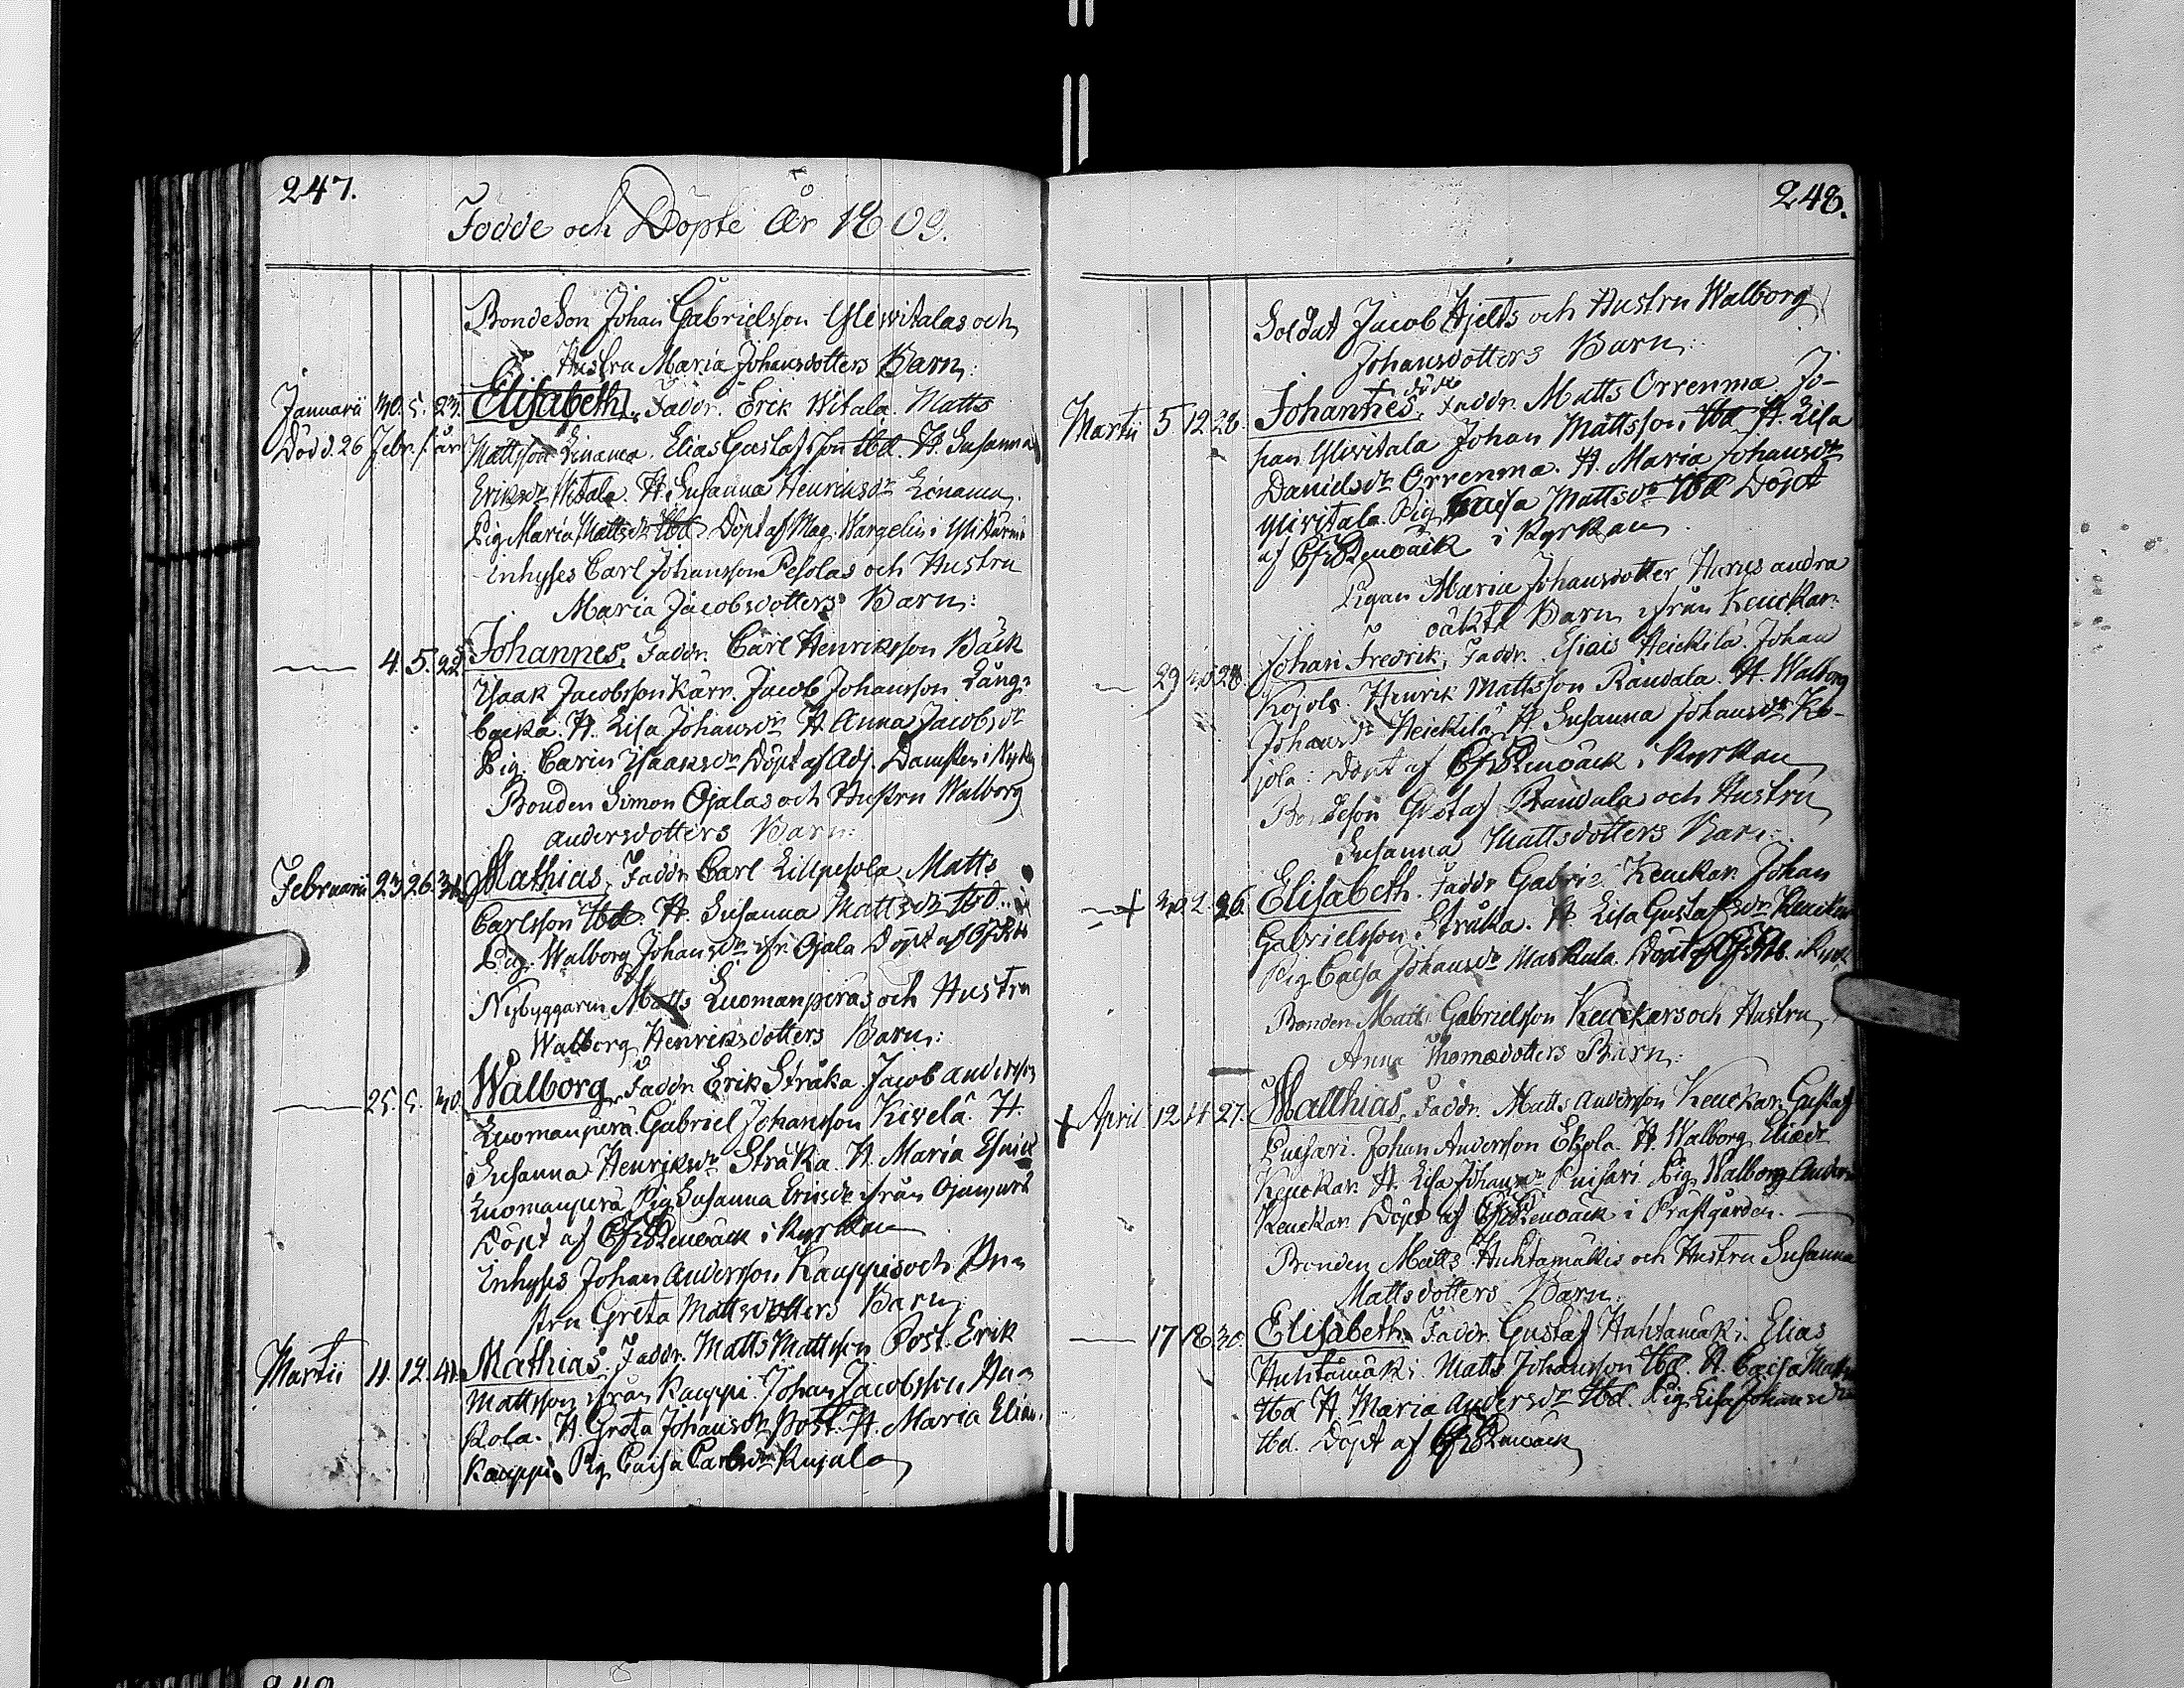 247.
Födde och Döpte År 1809.
BondeSon Johan Gabrielsson Yliwitalas och
Hustru Maria Johansdotters Barn:
Januarii 30. 5. 23. Elisabeth, Faddr. Erik Witala. Matts
Död d. 26 Febr. s. år Mattsson Linama. Elias Gustafsson Ibd. H. Susanna
Eriksdr Witala. H. Susanna Henriksdr Linama.
Pig. Maria Mattsdr Ibd. Döpt af Mag. Wargelin i
Inhyses Carl Johansson Pesolas och Hustru
Maria Jacobsdotters Barn:
4. 5. 22. Johannes, Faddr. Carl Henriksson Bäck
Isaak Jacobsson Kärr. Jacob Johansson Lång-
backa. H. Lisa Johansdr H. Anna Jacobsdr
Pig. Carin Isaaksdr Döpt af Adj. Damsten i
Bonden Simon Ojalas och Hustru Walborg
Andersdotters Barn:
Februarii 23 26. 31. Mathias, Faddr Carl Lillpesola, Matts
Carlsson Ibd. H. Susanna Mattsdr Ibd.
Pig. Walborg Johansdr ifr. Ojala Döpt af
Nybyggaren Matts Luomanperäs och Hustru
Walborg Henriksdotters Barn:
25. 5. 30. Walborg, Faddr. Erik Stråka. Jacob Andersson
Luomanperä. Gabriel Johansson Kivelä. H.
Susanna Henriksdr Stråka. H. Maria
Luomanperä Pig Susanna Ericsdr ifrån
Döpt af i Kyrkan
Inhyses Johan Andersson Kauppis och Hu-
stru Greta Mattsdotters Barn
Martii 11. 12. 41. Mathias. Faddr. Matts Mattsson Post. Erik
Mattsson ifrån Kauppi. Johan Jacobsson
kola. H. Greta Johansdr Post. H. Maria
Kauppi. Pig Caisa Carlsdr Kujala
248.
Soldat Jacob Hjelts och Hustru Walborg
Johansdotters Barn:
död
Martii 5 12 28. Johannes, Faddr. Matts Orrenma Jo-
han Yliwitala Johan Mattsson Ibd H. Lisa
Danielsdr Orrenma. H. Maria Johansdr
Yliwitala. Pig Caisa Mattsdr Ibd Döpt
af i Kyrkan
Pigan Maria Johansdotter Harus andra
oäkta Barn ifrån Keuckar:
29 28. Johan Fredrik, Faddr. Heickilä. Johan
Kojola. Henrik Mattsson Randala. H. Walborg
Johansdr Heickilä H. Susanna Johansdr Ko-
jola: Döpt af i Kyrkan
Bondeson Gustaf Randalas och Hustru
Susanna Mattsdotters Barn:
+ 30 2. 26. Elisabeth. Faddr Gabriel Keuckar. Johan
Gabrielsson Stråka. H. Lisa Gustafsdr Keuckar
Pig Caisa Johansdr Maskula. Döpt af
Bonden Matts Gabrielsson Keuckars och Hustru
Anna Thomædotters Barn:
+ April 12 14 27. Matthias, Faddr. Matts Andersson Keuckar. Gustaf
Puisari. Johan Andersson H. Walborg Eliædr
Keuckar. H. Lisa Johansdr Puisari. Pig Walborg
Keuckar. Döpt af i Prästgården.
Bonden Matts Huhtamäkis och Hustru Susanna
Mattsdotters Barn:
17 18. 30. Elisabeth. Faddr. Gustaf Huhtamäki. Elias
Huhtamäki. Matts Johansson Ibd. H. Caisa
Ibd H. Maria Andersdr Ibd. Pig Lisa
Ibd. Döpt af